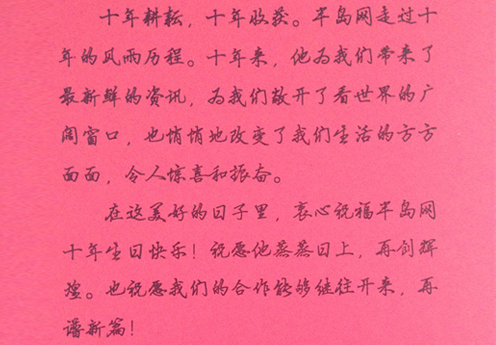 十年耕耘，十年收获。半岛网走过十
年的风雨历程。十年来，他为我们带来了
最新鲜的资讯，为我们敞开了看世界的广
阔窗口，也悄悄地改变了我们生活的方方
面面，令人惊喜和振奋。
在这美好的日子里，衷心祝福半岛网
十年生日快乐！祝愿他蒸蒸日上，再创辉
煌。也祝愿我们的合作能够继往开来，再
谱新篇！